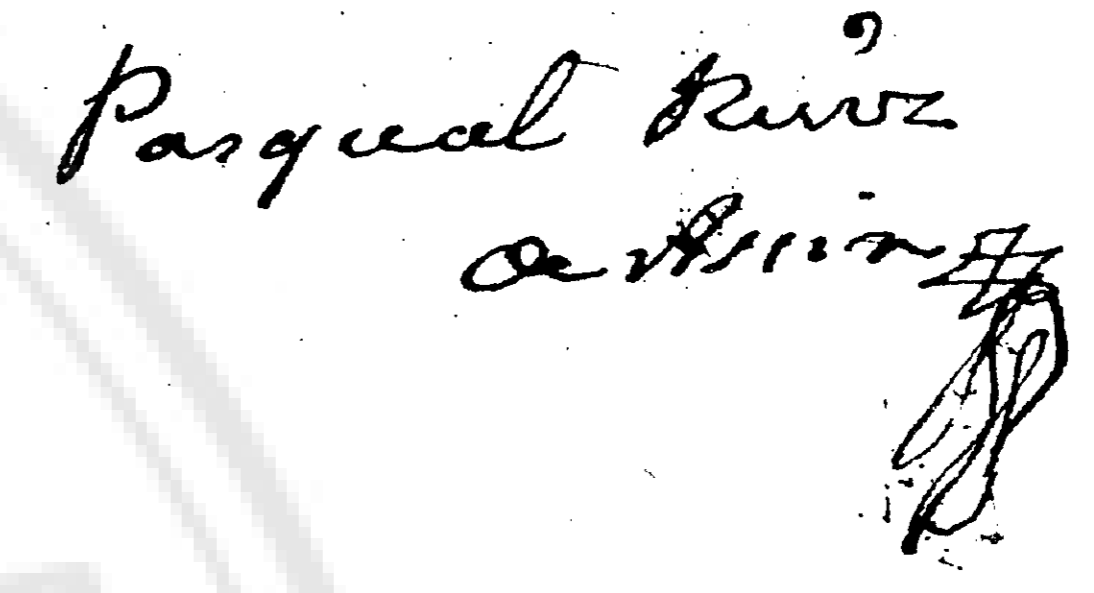 Pasqual Ruiz
de Assin